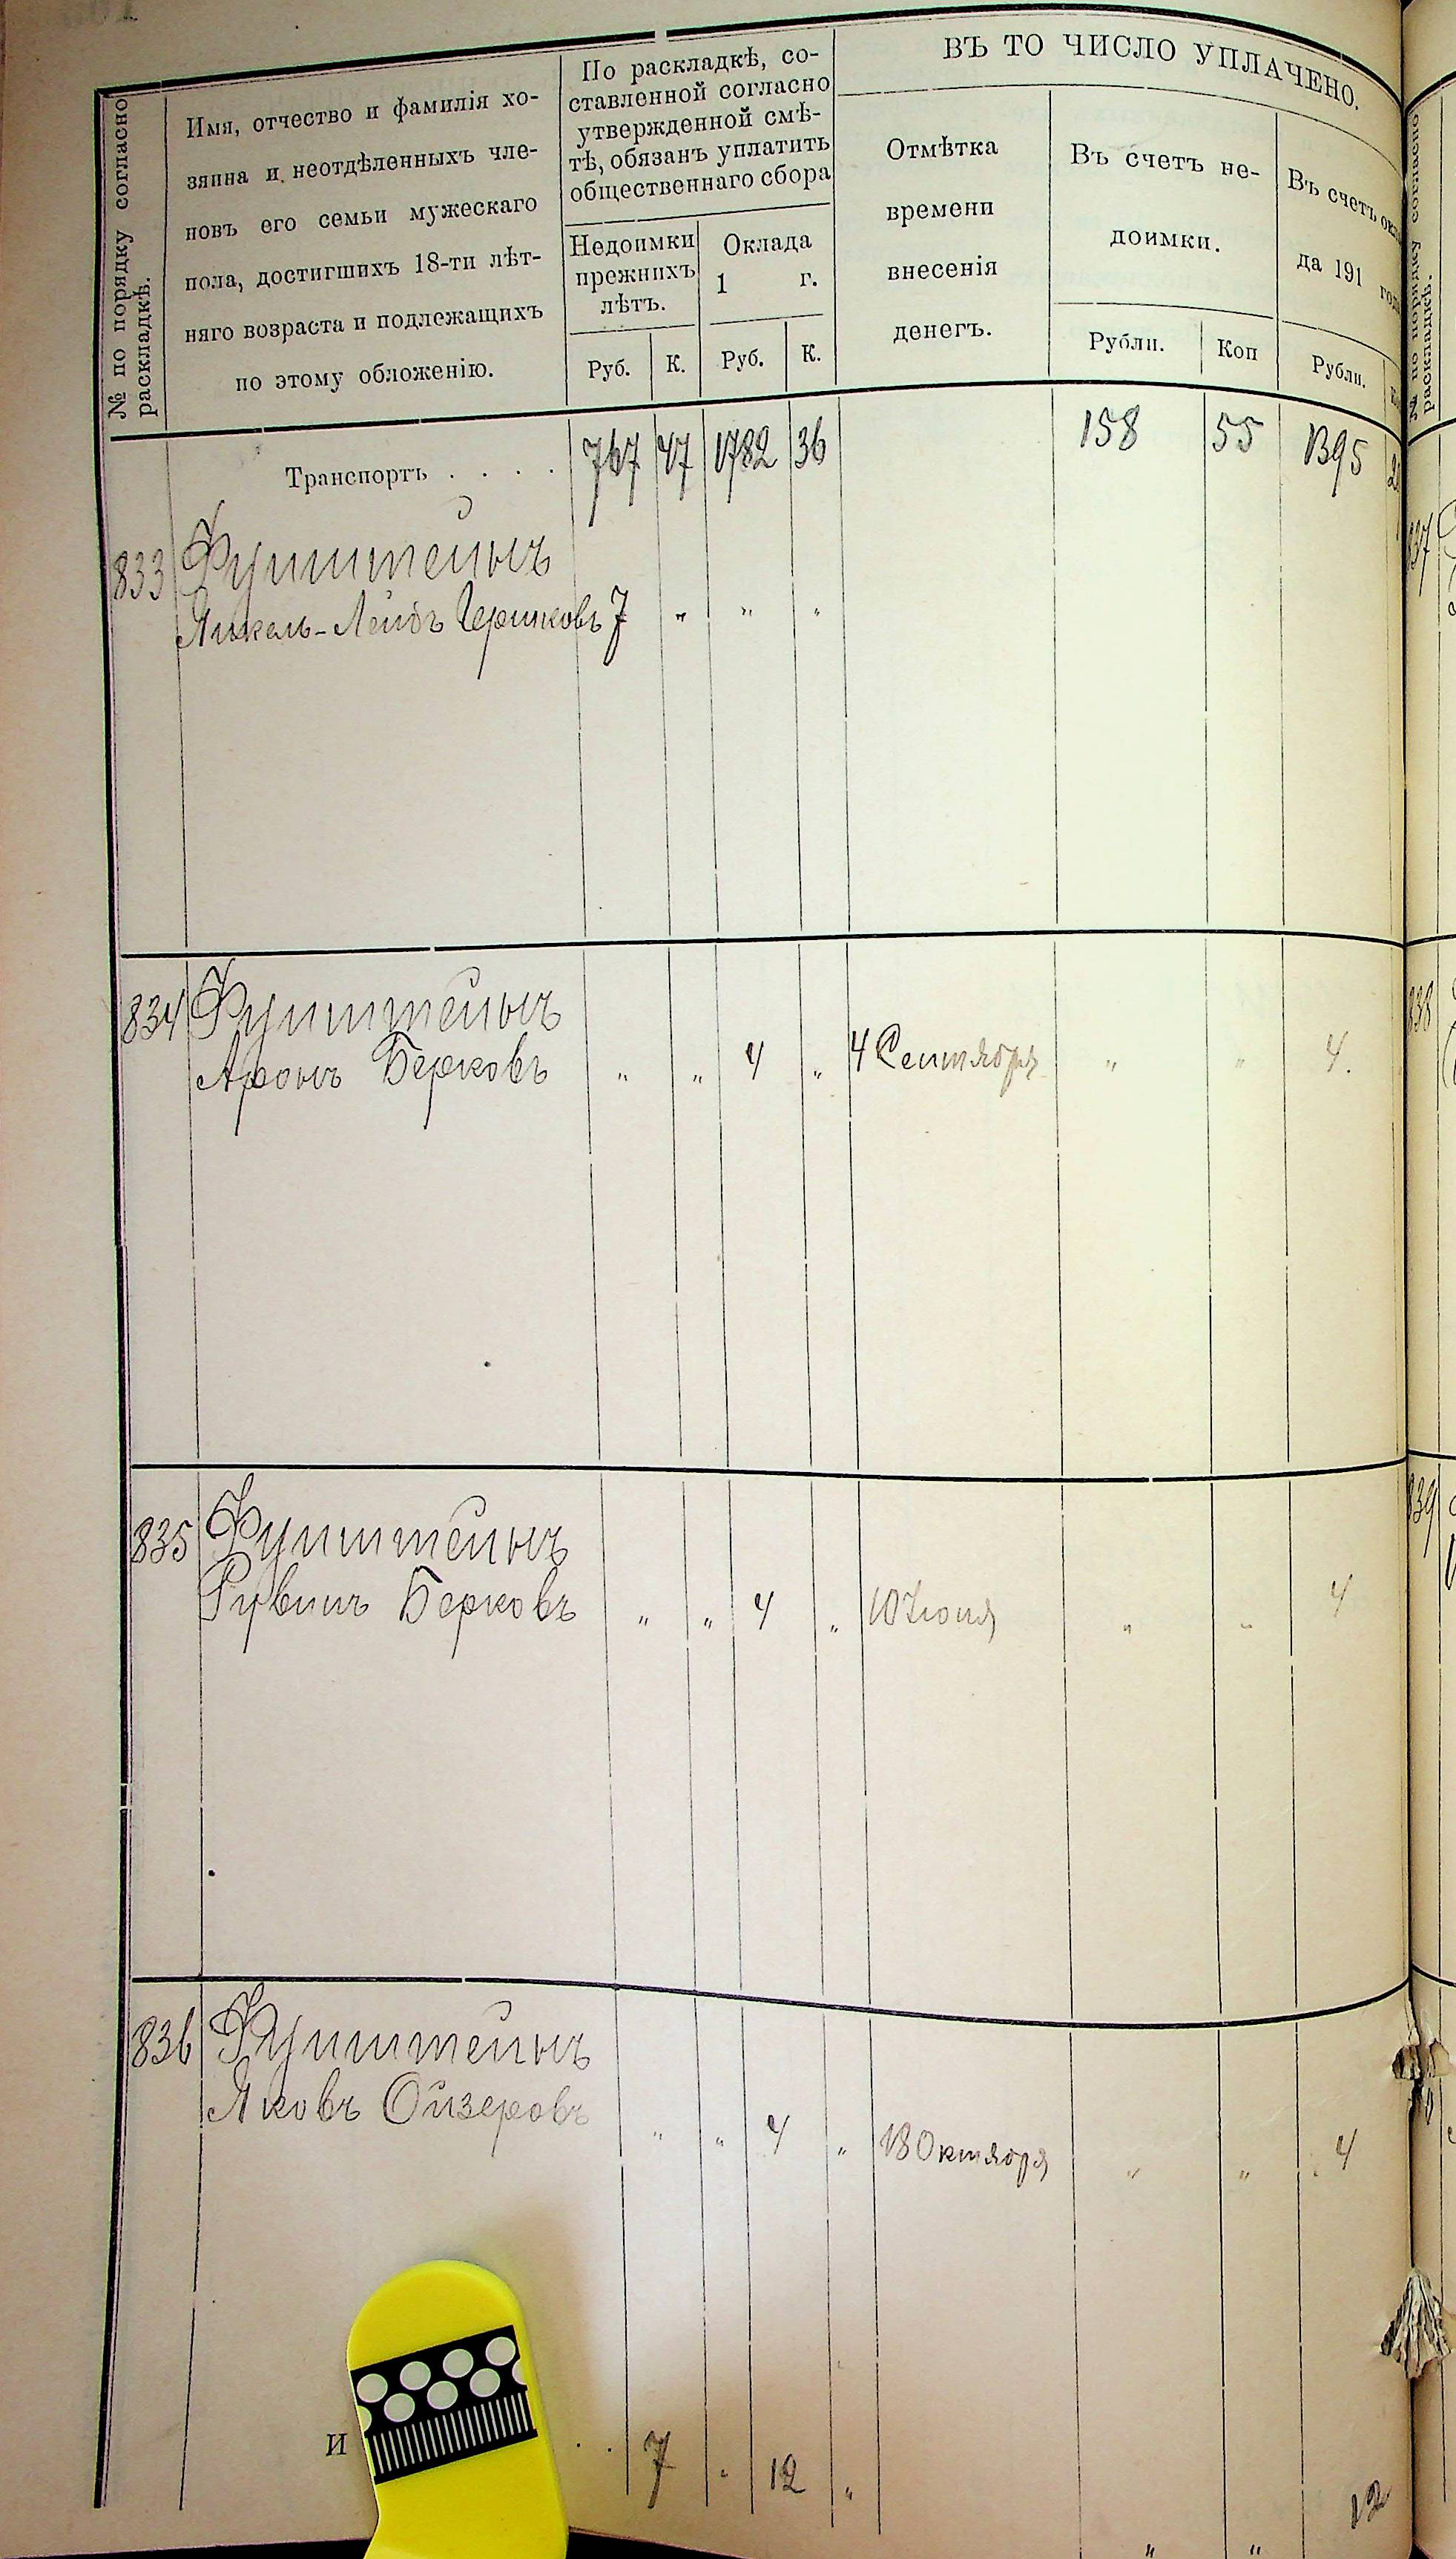 ВЪ ТО ЧИСЛО УПЛАЧЕНО.
№ по порядку согласно
раскладкѣ.
Имя, отчество и фамилія хо-
зяина и неотдѣленныхъ чле-
новъ его семьи мужескаго
пола, достигшихъ 18-ти лѣт-
няго возраста и подлежащихъ
по этому обложенію.
По раскладкѣ, со-
ставленной согласно
утвержденной смѣ-
тѣ, обязанъ уплатить
общественнаго сбора
Недоимки
прежнихъ
лѣтъ.
Оклада
1 г.
Отмѣтка
времени
внесенія
денегъ.
Въ счетъ не-
доимки.
Въ счетъ окла
да 191 года
Руб. К. Руб. К. Рубли. Коп Рубли.
Транспортъ . . . . 767 47 1782 36 158 55 1395
833 Фунштейнъ
Янкель-Лейбъ Гершковъ 7 " " "
834 Фунштейнъ
Аронъ Берковъ " " 4 " 4 Сентября " " 4.
835 Фунштейнъ
Рувинъ Берковъ " " 4 " 10 Іюня " " 4
836 Фунштейнъ
Яковъ Ойзеровъ " " 4 " 18 Октября " " 4
И . . 7 " 12 " " " 12
№ по порядку согласно
раскладкѣ.
837
838
839